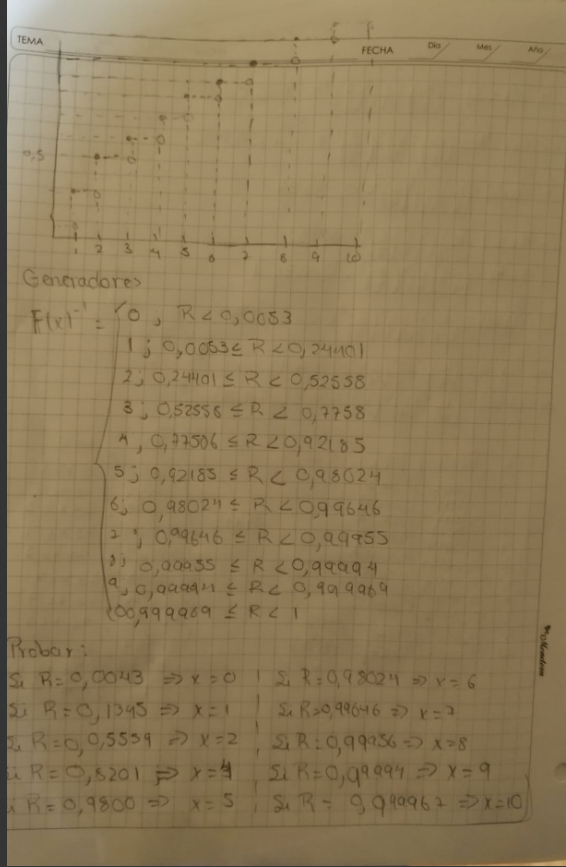 TEMA
FECHA Día Mes Año
0,5
1 2 3 4 5 6 7 8 9 10
Generadores
F(x)⁻¹ = 0, R < 0,0053
1; 0,0053 ≤ R < 0,24401
2; 0,24401 ≤ R < 0,52558
3; 0,52558 ≤ R < 0,7758
4, 0,77506 ≤ R < 0,92185
5; 0,92185 ≤ R < 0,98024
6; 0,98024 ≤ R < 0,99646
7; 0,99646 ≤ R < 0,99955
8; 0,99955 ≤ R < 0,99994
9, 0,99994 ≤ R < 0,999969
10 0,999969 ≤ R < 1
Probar:
Si R = 0,0043 => x = 0 Si R = 0,98024 => x = 6
Si R = 0,1345 => x = 1 Si R = 0,99646 => x = 7
Si R = 0,05559 => x = 2 Si R = 0,99956 => x = 8
Si R = 0,8201 => x = 4 Si R = 0,09994 => x = 9
Si R = 0,9800 => x = 5 Si R = 0,999967 => x = 10